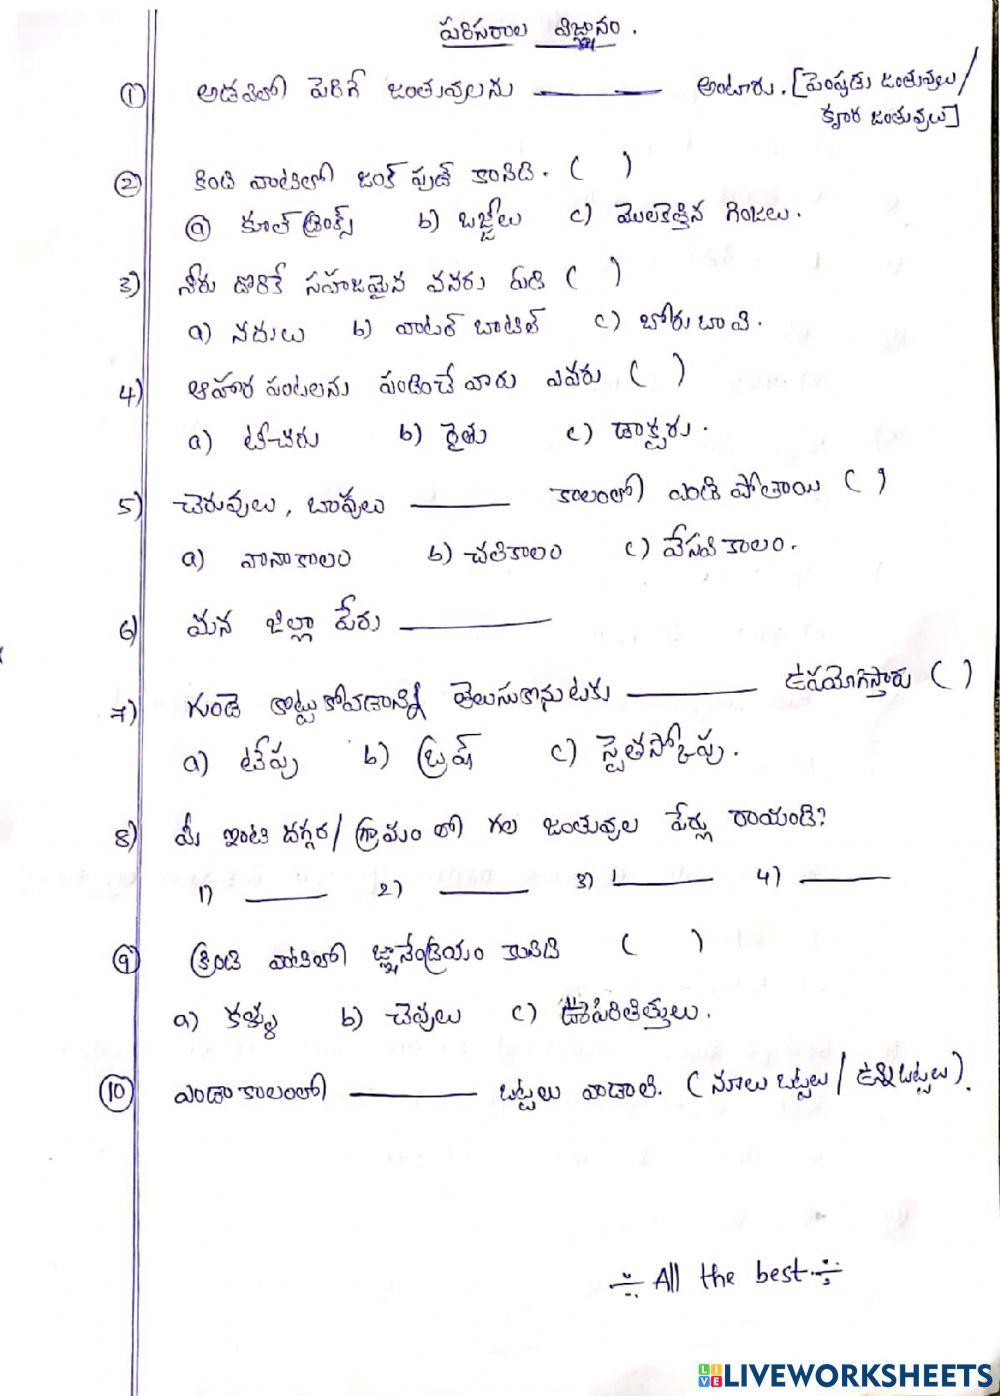 పరిసరాల విజ్ఞానం.
1) అడవిలో పెరిగే జంతువులను ______ అంటారు. [పెంపుడు జంతువులు/
క్రూర జంతువులు]
2) కింది వాటిలో జంక్ ఫుడ్ కానిది. ( )
a) కూల్ డ్రింక్స్ b) బజ్జీలు c) మొలకెత్తిన గింజలు.
3) నీరు దొరికే సహజమైన వనరు ఏది ( )
a) నదులు b) వాటర్ బాటిల్ c) బోరు బావి.
4) ఆహార పంటలను పండించే వారు ఎవరు ( )
a) టీచరు b) రైతు c) డాక్టరు.
5) చెరువులు, బావులు ______ కాలంలో ఎండి పోతాయి ( )
a) వానాకాలం b) చలికాలం c) వేసవి కాలం.
6) మన జిల్లా పేరు ______
7) గుండె కొట్టుకోవడాన్ని తెలుసుకొనుటకు ______ ఉపయోగిస్తారు ( )
a) టేపు b) బ్రష్ c) స్టెతస్కోపు.
8) మీ ఇంటి దగ్గర/గ్రామం లో గల జంతువుల పేర్లు రాయండి?
1) ______ 2) ______ 3) ______ 4) ______
9) క్రింది వాటిలో జ్ఞానేంద్రియం కానిది ( )
a) కళ్ళు b) చెవులు c) ఊపిరితిత్తులు.
10) ఎండాకాలంలో ______ బట్టలు వాడాలి. (నూలు బట్టలు/ ఉన్ని బట్టలు).
÷ All the best ÷
LIVEWORKSHEETS